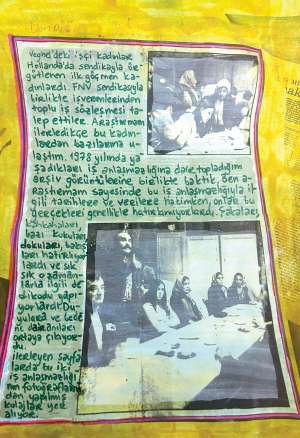 Veghel'deki işçi kadınlar
Hollanda'da sendikayla ör-
gütlenen ilk göçmen ka-
dınlardı. FNV sendikasıyla
birlikte işverenlerinden
toplu iş sözleşmesi ta-
lep ettiler. Araştırmam
ilerledikçe bu kadın-
lardan bazılarına u-
laştım. 1978 yılında ya-
şadıkları iş anlaşmazlığına dair topladığım
arşiv görüntülerine birlikte baktık. Ben a-
raştırmam sayesinde bu iş anlaşmazlığıyla il-
gili tarihlere ve verilere hakimken, onlar bu
gerçekleri genellikle hatırlamıyorlardı. Şakaları,
bazı kokuları,
dokuları, bakış-
ları hatırlıyor-
lardı ve sık
sık o zaman-
larla ilgili de-
dikodu yapı-
yorlardı. Du-
gulara ve bede-
ortaya çıkıyor-
du.
İlerleyen sayfa-
larda bu iki
iş anlaşmazlığı-
nın fotoğrafların-
dan yapılmış
kolajlar yer
alıyor.